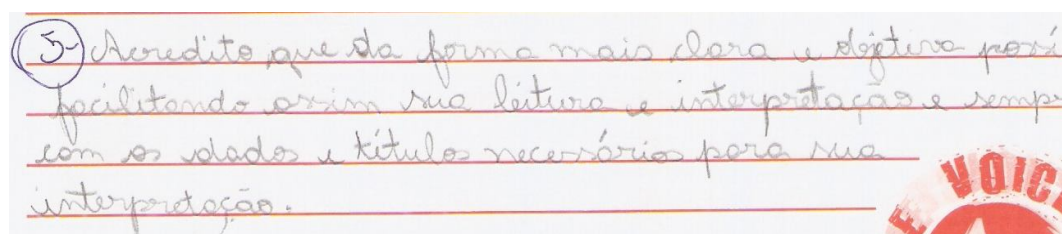 5- Acredito que da forma mais clara e objetiva possí
facilitando assim sua leitura e interpretação e semp
com os dados e títulos necessários para sua
interpretação.
VOIC